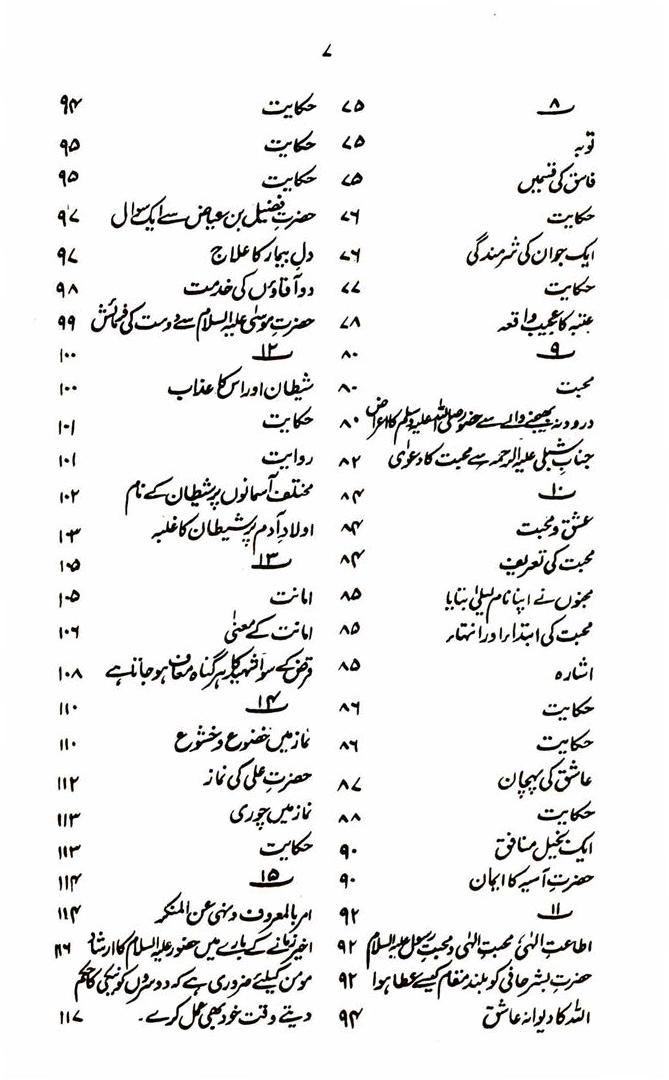 ۷
باب ۸ ۷۵
توبہ ۷۵
فاسق کی قسمیں ۷۵
حکایت ۷۶
ایک جوان کی شرمندگی ۷۶
حکایت ۷۷
عتبہ کا عجیب واقعہ ۷۸
باب ۹ ۸۰
محبت ۸۰
درود نہ بھیجنے والے سے حضور صلی اللہ علیہ وسلم کا اعراض ۸۰
جناب شبلی علیہ الرحمہ سے محبت کا دعوٰی ۸۲
باب ۱۰ ۸۴
عشق و محبت ۸۴
محبت کی تعریف ۸۴
مجنوں نے اپنا نام لیلیٰ بتایا ۸۵
محبت کی ابتداء اور انتہاء ۸۵
اشارہ ۸۵
حکایت ۸۶
حکایت ۸۶
عاشق کی پہچان ۸۷
حکایت ۸۸
ایک بخیل منافق ۹۰
حضرتِ آسیہ کا ایمان ۹۰
باب ۱۱ ۹۲
اطاعتِ الہٰی، محبتِ الہٰی و محبتِ رسول علیہ السلام ۹۲
حضرتِ بشر حافی کو بلند مقام کیسے عطا ہوا ۹۲
اللہ کا دیوانہ عاشق ۹۴
حکایت ۹۴
حکایت ۹۵
حکایت ۹۵
حضرتِ فضیل بن عیاض سے ایک سوال ۹۷
دلِ بیمار کا علاج ۹۷
دو آقاؤں کی خدمت ۹۸
حضرتِ موسیٰ علیہ السلام سے دوست کی فرمائش ۹۹
باب ۱۲ ۱۰۰
شیطان اور اس کا عذاب ۱۰۰
حکایت ۱۰۱
روایت ۱۰۱
مختلف آسمانوں پر شیطان کے نام ۱۰۲
اولادِ آدم پر شیطان کا غلبہ ۱۰۳
باب ۱۳ ۱۰۵
امانت ۱۰۵
امانت کے معنیٰ ۱۰۶
قرض کے سوا شہید کا ہر گناہ معاف ہو جاتا ہے ۱۰۸
باب ۱۴ ۱۱۰
نماز میں خضوع و خشوع ۱۱۰
حضرتِ علی کی نماز ۱۱۲
نماز میں چوری ۱۱۳
حکایت ۱۱۳
باب ۱۵ ۱۱۴
امر بالمعروف و نہی عن المنکر ۱۱۴
اخیر زمانے کے بارے میں حضور علیہ السلام کا ارشاد ۱۱۶
مومن کیلئے ضروری ہے کہ دوسروں کو نیکی کا حکم
دیتے وقت خود بھی عمل کرے۔ ۱۱۷